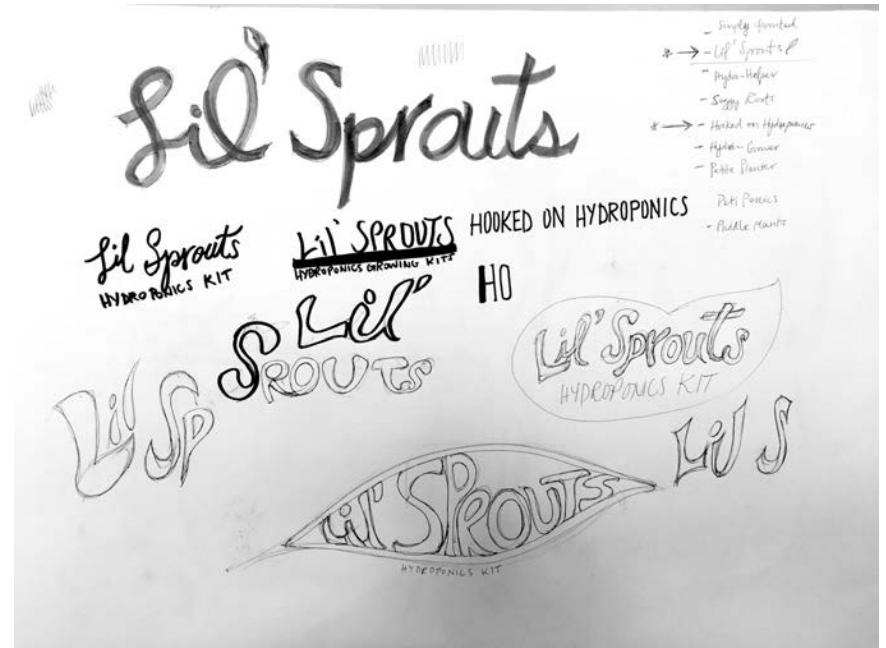 Lil' Sprouts
Simply
Lil' Sprouts
Hydro-Helper
Soggy Roots
Hooked on Hydroponics
Hydro-Grower
Petite Planter
Puddle Plants
Lil Sprouts
HYDROPONICS KIT
Lil' SPROUTS
HYDROPONICS GROWING KITS
HOOKED ON HYDROPONICS
HO
Lil'
S
SPROUTS
Lil Sp
Lil' Sprouts
HYDROPONICS KIT
Lil S
Lil' SPROUTS
HYDROPONICS KIT